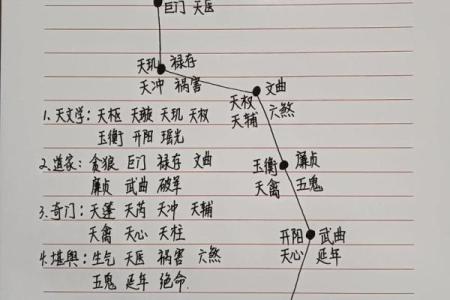 巨门 天医
天玑 禄存
天冲 祸害
文曲
天权
六煞
天辅
1.天文学：天枢 天璇 天玑 天权
玉衡 开阳 瑶光
2.道家：贪狼 巨门 禄存 文曲
廉贞 武曲 破军
玉衡 廉贞
天禽 五鬼
3.奇门：天蓬 天芮 天冲 天辅
天禽 天心 天柱
开阳 武曲
天心 延年
4.堪舆：生气 天医 祸害 六煞
五鬼 延年 绝命.